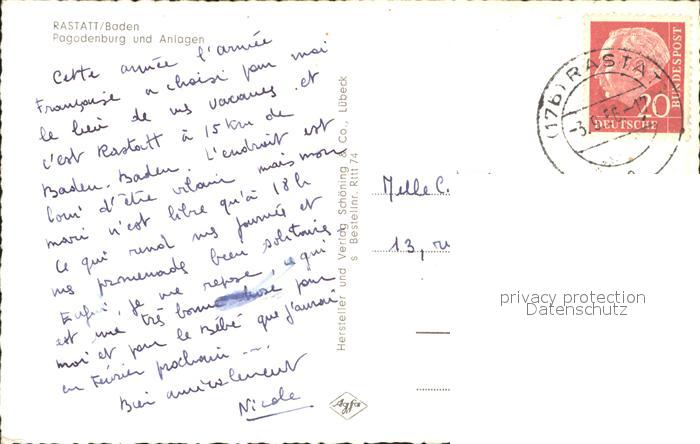 RASTATT/Baden
Pagodenburg und Anlagen
Cette année l'armée
Française a choisi pour moi
le lieu de mes vacances et
c'est Rastatt à 15 Km de
Baden-Baden. L'endroit est
loin d'être vilain mais mon
mari n'est libre qu'à 18h
Ce qui rend mes journées et
mes promenades bien solitaires
Enfin, je me repose, ce qui
est une très bonne chose pour
moi et pour le Bébé que j'aurai
en Février prochain ...
Bien amicalement
Nicole
Hersteller und Verlag Schöning & Co., Lübeck
s Bestellnr. Ritt 74
Agfa
(17b) RASTAT
BUNDESPOST
20
DEUTSCHE
Melle C.
13, ru
privacy protection
Datenschutz